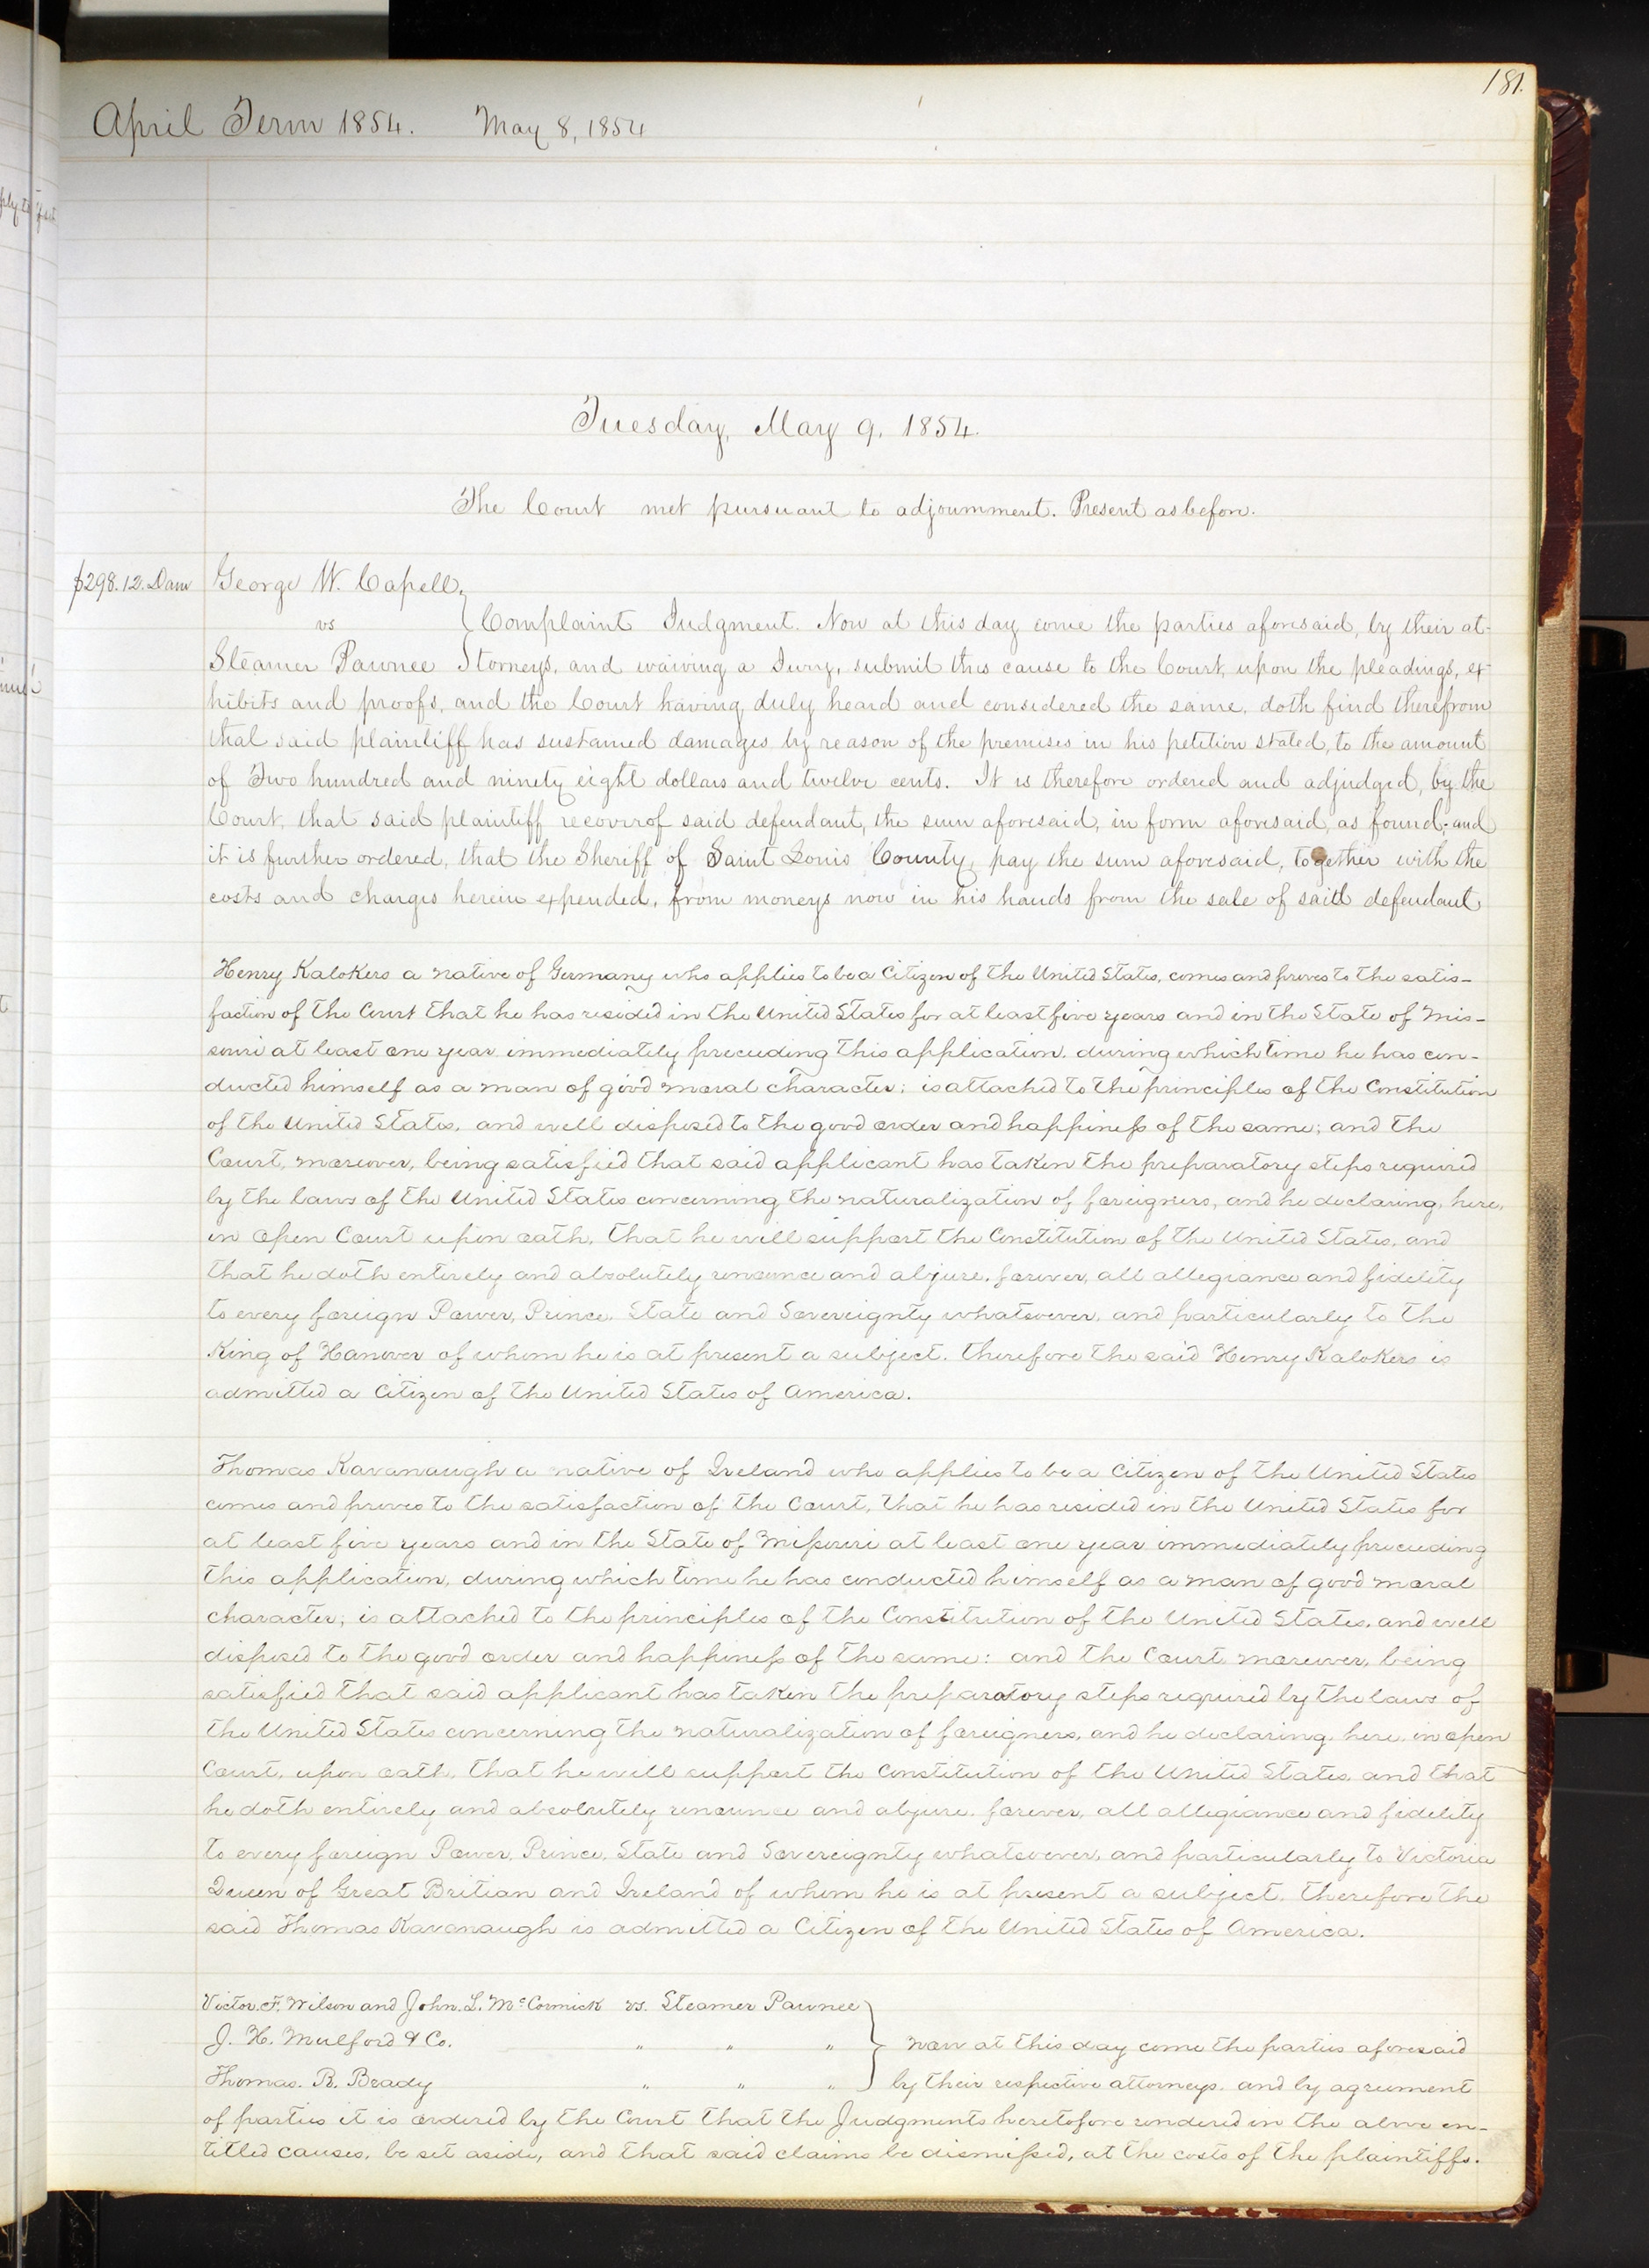 181.
April Term 1854. May 8, 1854
Tuesday, May 9, 1854.
The Court met pursuant to adjournment. Present as before.
$298.12. Dam George W. Capell,
vs Complaint Judgment. Now at this day come the parties aforesaid, by their at-
Steamer Pawnee torneys, and waiving a Jury, submit this cause to the Court, upon the pleadings, ex-
hibits and proofs, and the Court having duly heard and considered the same, doth find therefrom
that said plaintiff has sustained damages by reason of the premises in his petition stated, to the amount
of Two hundred and ninety eight dollars and twelve cents. It is therefore ordered and adjudged, by the
Court, that said plaintiff recover of said defendant, the sum aforesaid, in form aforesaid, as found; and
it is further ordered, that the Sheriff of Saint Louis County, pay the sum aforesaid, together with the
costs and charges herein expended, from moneys now in his hands from the sale of said defendant.
Henry Kalokers a native of Germany who applies to be a Citizen of the United States, comes and proves to the satis-
faction of the Court that he has resided in the United States for at least five years and in the State of Mis-
souri at least one year immediately preceding this application, during which time he has con-
ducted himself as a man of good moral character; is attached to the principles of the Constitution
of the United States, and well disposed to the good order and happiness of the same; and the
Court, moreover, being satisfied that said applicant has taken the preparatory steps required
by the laws of the United States concerning the naturalization of foreigners, and he declaring, here,
in open Court upon oath, that he will support the Constitution of the United States, and
that he doth entirely and absolutely renounce and abjure, forever, all allegiance and fidelity
to every foreign Power, Prince, State and Sovereignty whatsoever, and particularly to the
King of Hanover of whom he is at present a subject. Therefore the said Henry Kalokers is
admitted a Citizen of the United States of America.
Thomas Kavanaugh a native of Ireland who applies to be a Citizen of the United States
comes and proves to the satisfaction of the Court, that he has resided in the United States for
at least five years and in the State of Missouri at least one year immediately preceding
this application, during which time he has conducted himself as a man of good moral
character; is attached to the principles of the Constitution of the United States, and well
disposed to the good order and happiness of the same: and the Court moreover, being
satisfied that said applicant has taken the preparatory steps required by the laws of
the United States concerning the naturalization of foreigners, and he declaring, here, in open
Court, upon oath, that he will support the Constitution of the United States, and that
he doth entirely and absolutely renounce and abjure, forever, all allegiance and fidelity
to every foreign Power, Prince, State and Sovereignty whatsoever, and particularly to Victoria
Queen of Great Britian and Ireland of whom he is at present a subject. Therefore the
said Thomas Kavanaugh is admitted a Citizen of the United States of America.
Victor. F. Wilson and John. L. McCormick vs. Steamer Pawnee
J. H. Mulford & Co. " " " Now at this day come the parties aforesaid
Thomas. R. Brady " " " by their respective attorneys, and by agreement
of parties it is ordered by the Court that the Judgments heretofore rendered in the above en-
titled causes, be set aside, and that said claims be dismissed, at the costs of the plaintiffs.